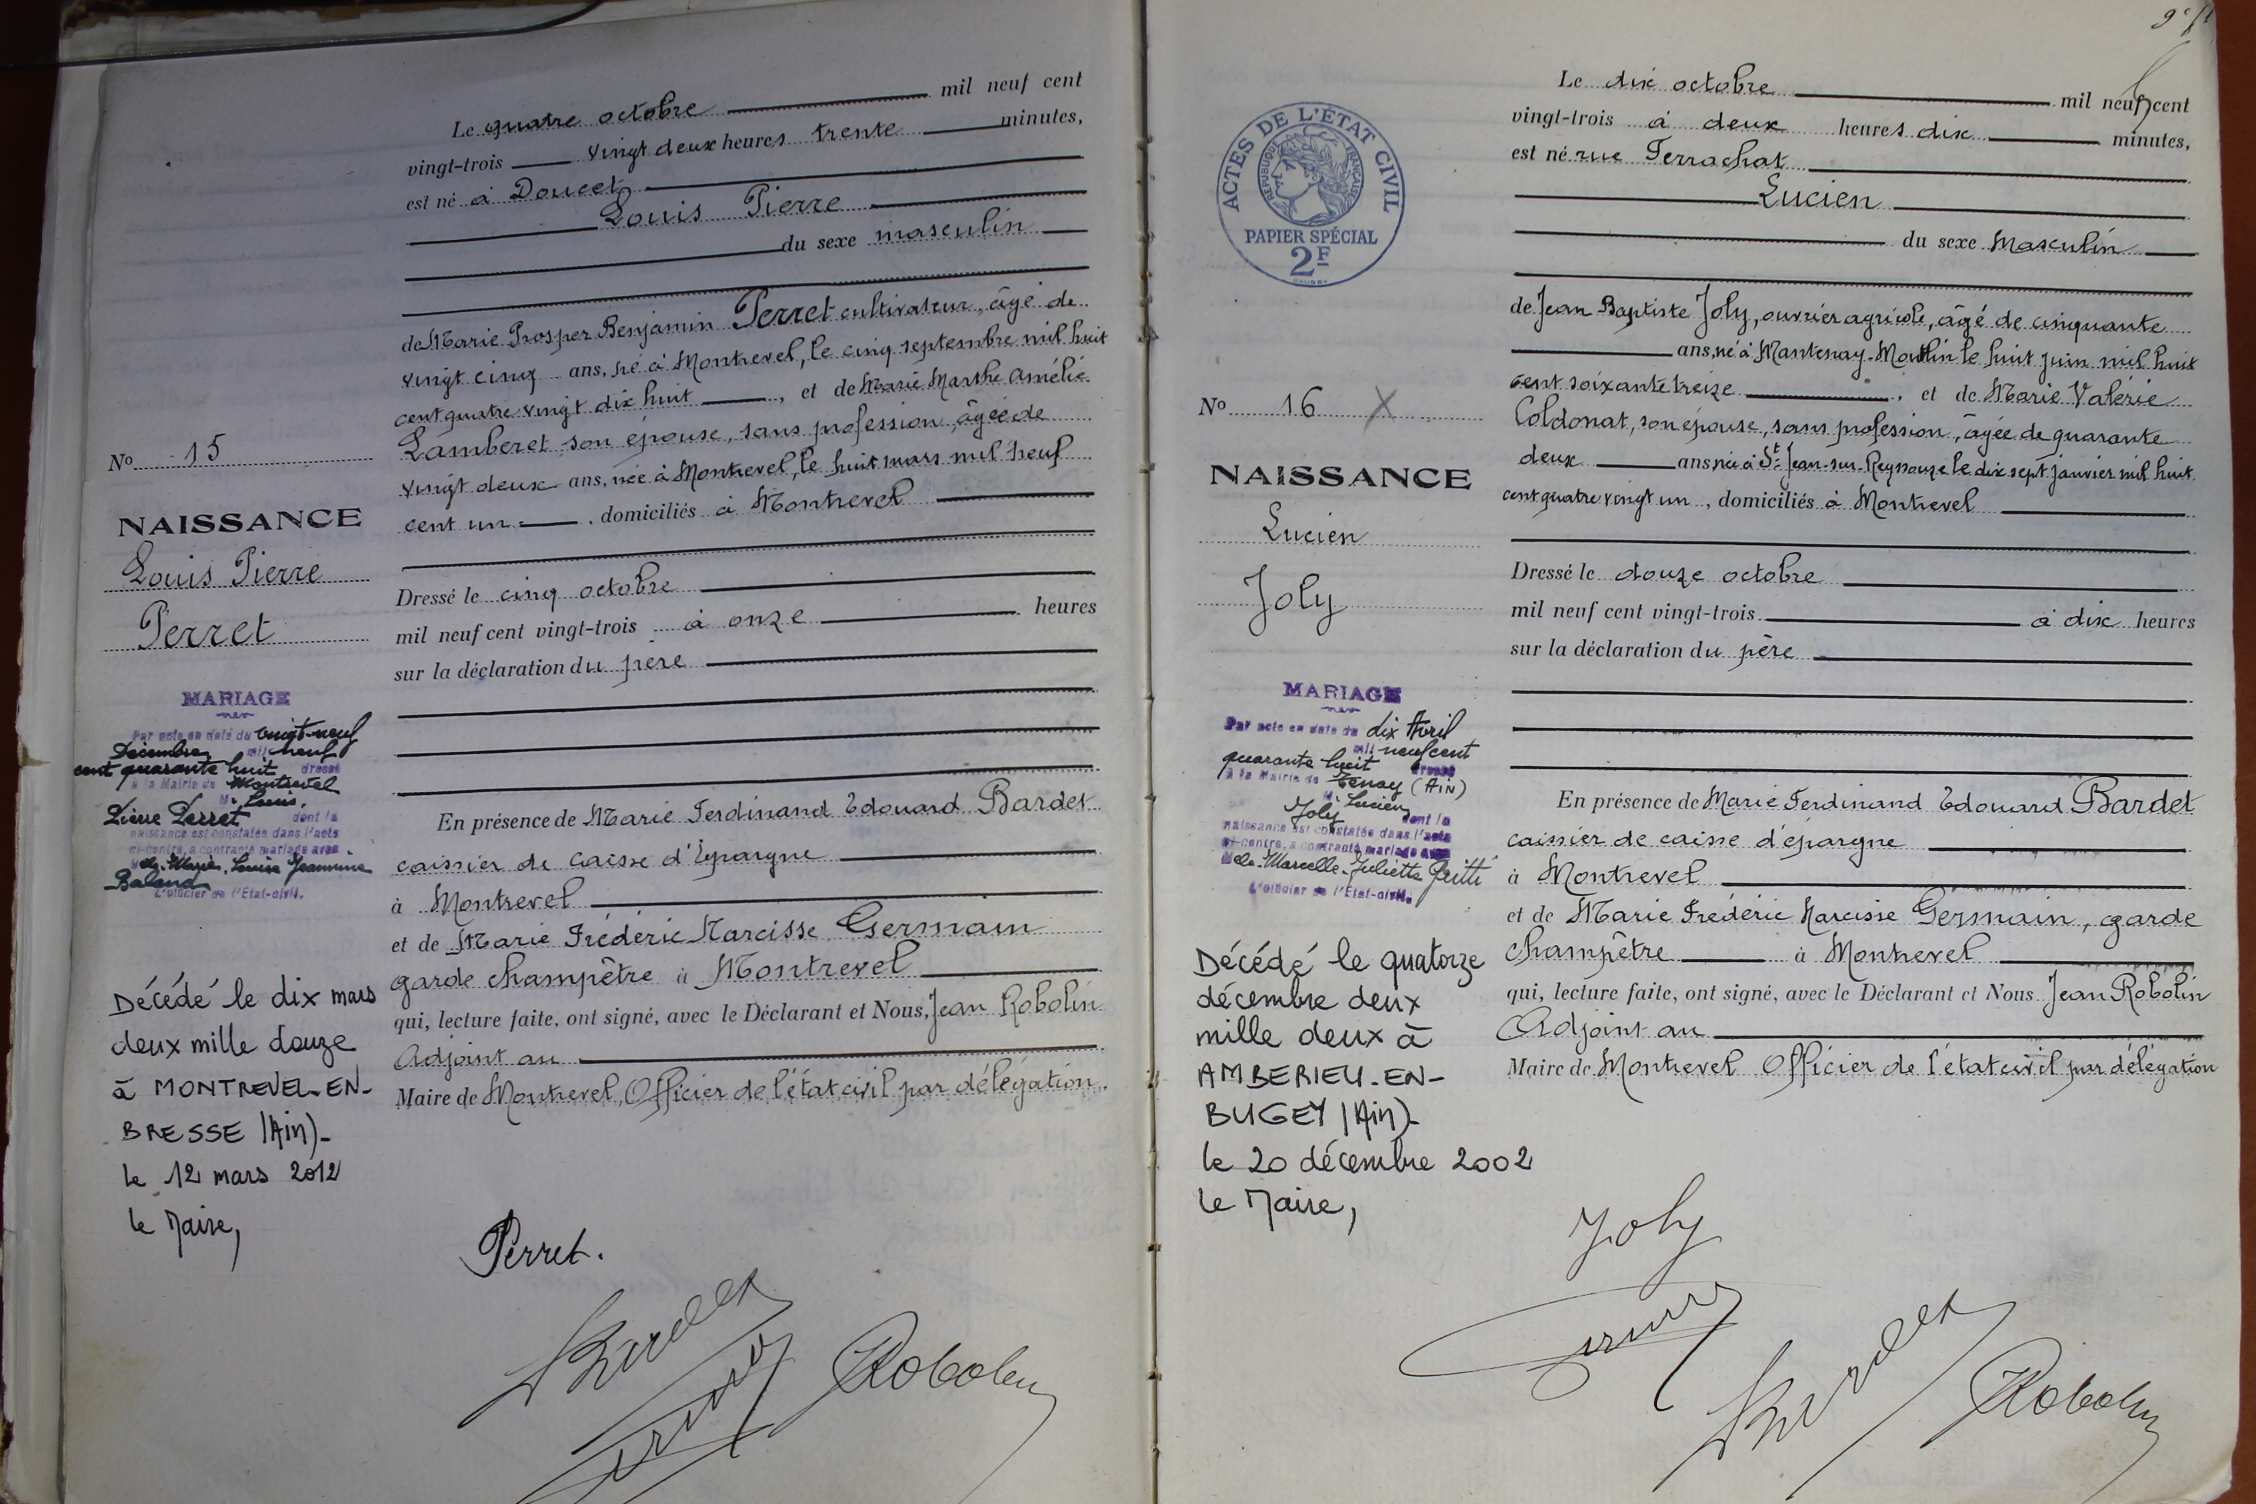 Le quatre octobre mil neuf cent
vingt-trois vingt deux heures trente minutes,
est né à Doucet
Louis Pierre
du sexe masculin
de Marie Prosper Benjamin Perret cultivateur, âgé de
vingt cinq ans, né à Montrevel, le cinq septembre mil huit
cent quatre vingt dix huit, et de Marie Marthe Amélie
Lamberet son épouse, sans profession, âgée de
vingt deux ans, née à Montrevel, le huit mars mil neuf
cent un, domiciliés à Montrevel
Dressé le cinq octobre
mil neuf cent vingt-trois à onze heures
sur la déclaration du père
En présence de Marie Ferdinand Edouard Bardet
caissier de caisse d'Epargne
à Montrevel
et de Marie Frédéric Narcisse Germain
garde champêtre à Montrevel
qui, lecture faite, ont signé, avec le Déclarant et Nous, Jean Robolin
Adjoint au
Maire de Montrevel, Officier de l'état civil par délégation.
No 15
NAISSANCE
Louis Pierre
Perret
MARIAGE
Par acte en date du vingt-neuf
Décembre mil neuf
cent quarante huit dressé
à la Mairie de Montrevel
M. Louis,
Pierre Perret dont la
naissance est constatée dans l'acte
ci-contre, a contracté mariage avec
Marie, Louise Jeannine
Baland
L'officier de l'État-civil.
Décédé le dix mars
deux mille douze
à MONTREVEL-EN-
BRESSE (Ain)-
le 12 mars 2012
le Maire,
Perret.
Bardet
Robolin
Le dix octobre mil neuf cent
vingt-trois à deux heures dix minutes,
est né rue Ferrachat
Lucien
du sexe Masculin
de Jean Baptiste Joly, ouvrier agricole, âgé de cinquante
ans, né à Mantenay-Montlin le huit juin mil huit
cent soixante treize, et de Marie Valérie
Coldonat, son épouse, sans profession, âgée de quarante
deux ans née à St Jean-sur-Reyssouze le dix sept janvier mil huit
cent quatre vingt un, domiciliés à Montrevel
Dressé le douze octobre
mil neuf cent vingt-trois à dix heures
sur la déclaration du père
En présence de Marie Ferdinand Edouard Bardet
caissier de caisse d'épargne
à Montrevel
et de Marie Frédéric Narcisse Germain, garde
champêtre à Montrevel
qui, lecture faite, ont signé, avec le Déclarant et Nous Jean Robolin
Adjoint au
Maire de Montrevel Officier de l'état civil par délégation
ACTES DE L'ÉTAT CIVIL
RÉPUBLIQUE FRANÇAISE
PAPIER SPÉCIAL
2F
No 16 X
NAISSANCE
Lucien
Joly
MARIAGE
Par acte en date du dix Avril
mil neuf cent
quarante huit dressé
à la Mairie de Tenay (AIN)
M. Lucien
Joly dont la
naissance est constatée dans l'acte
ci-contre, a contracté mariage avec
Marcelle Juliette
L'officier de l'État-civil.
Décédé le quatorze
décembre deux
mille deux à
AMBERIEU-EN-
BUGEY (Ain)-
le 20 décembre 2002
le Maire,
Joly
Bardet
Robolin